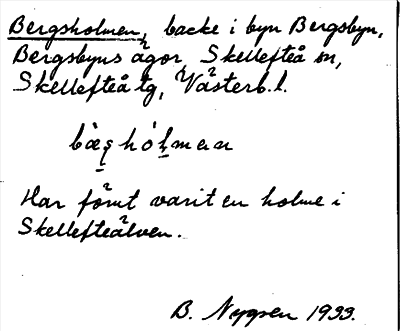 Bergsholmen, backe i byn Bergsbyn,
Bergsbyns ägor, Skellefteå sn,
Skellefteå tg, Västerb. l.
Har förut varit en holme i
Skellefteälven.
B. Nygren 1933.